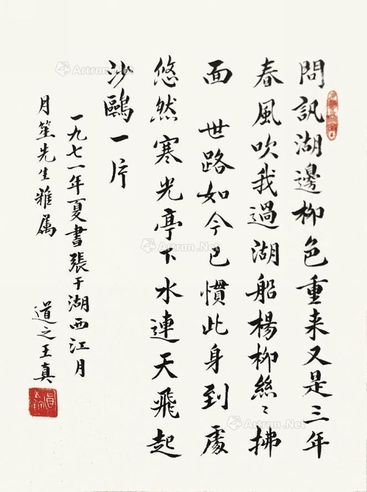 問訊湖邊柳色重来又是三年
春風吹我過湖船楊柳絲〻拂
面 世路如今已慣此身到處
悠然寒光亭下水連天飛起
沙鷗一片
一九七一年夏書張于湖西江月
月笙先生雅属
道之王真
Artron.Net
Artron.Net
Artron.Net
Artron.Net